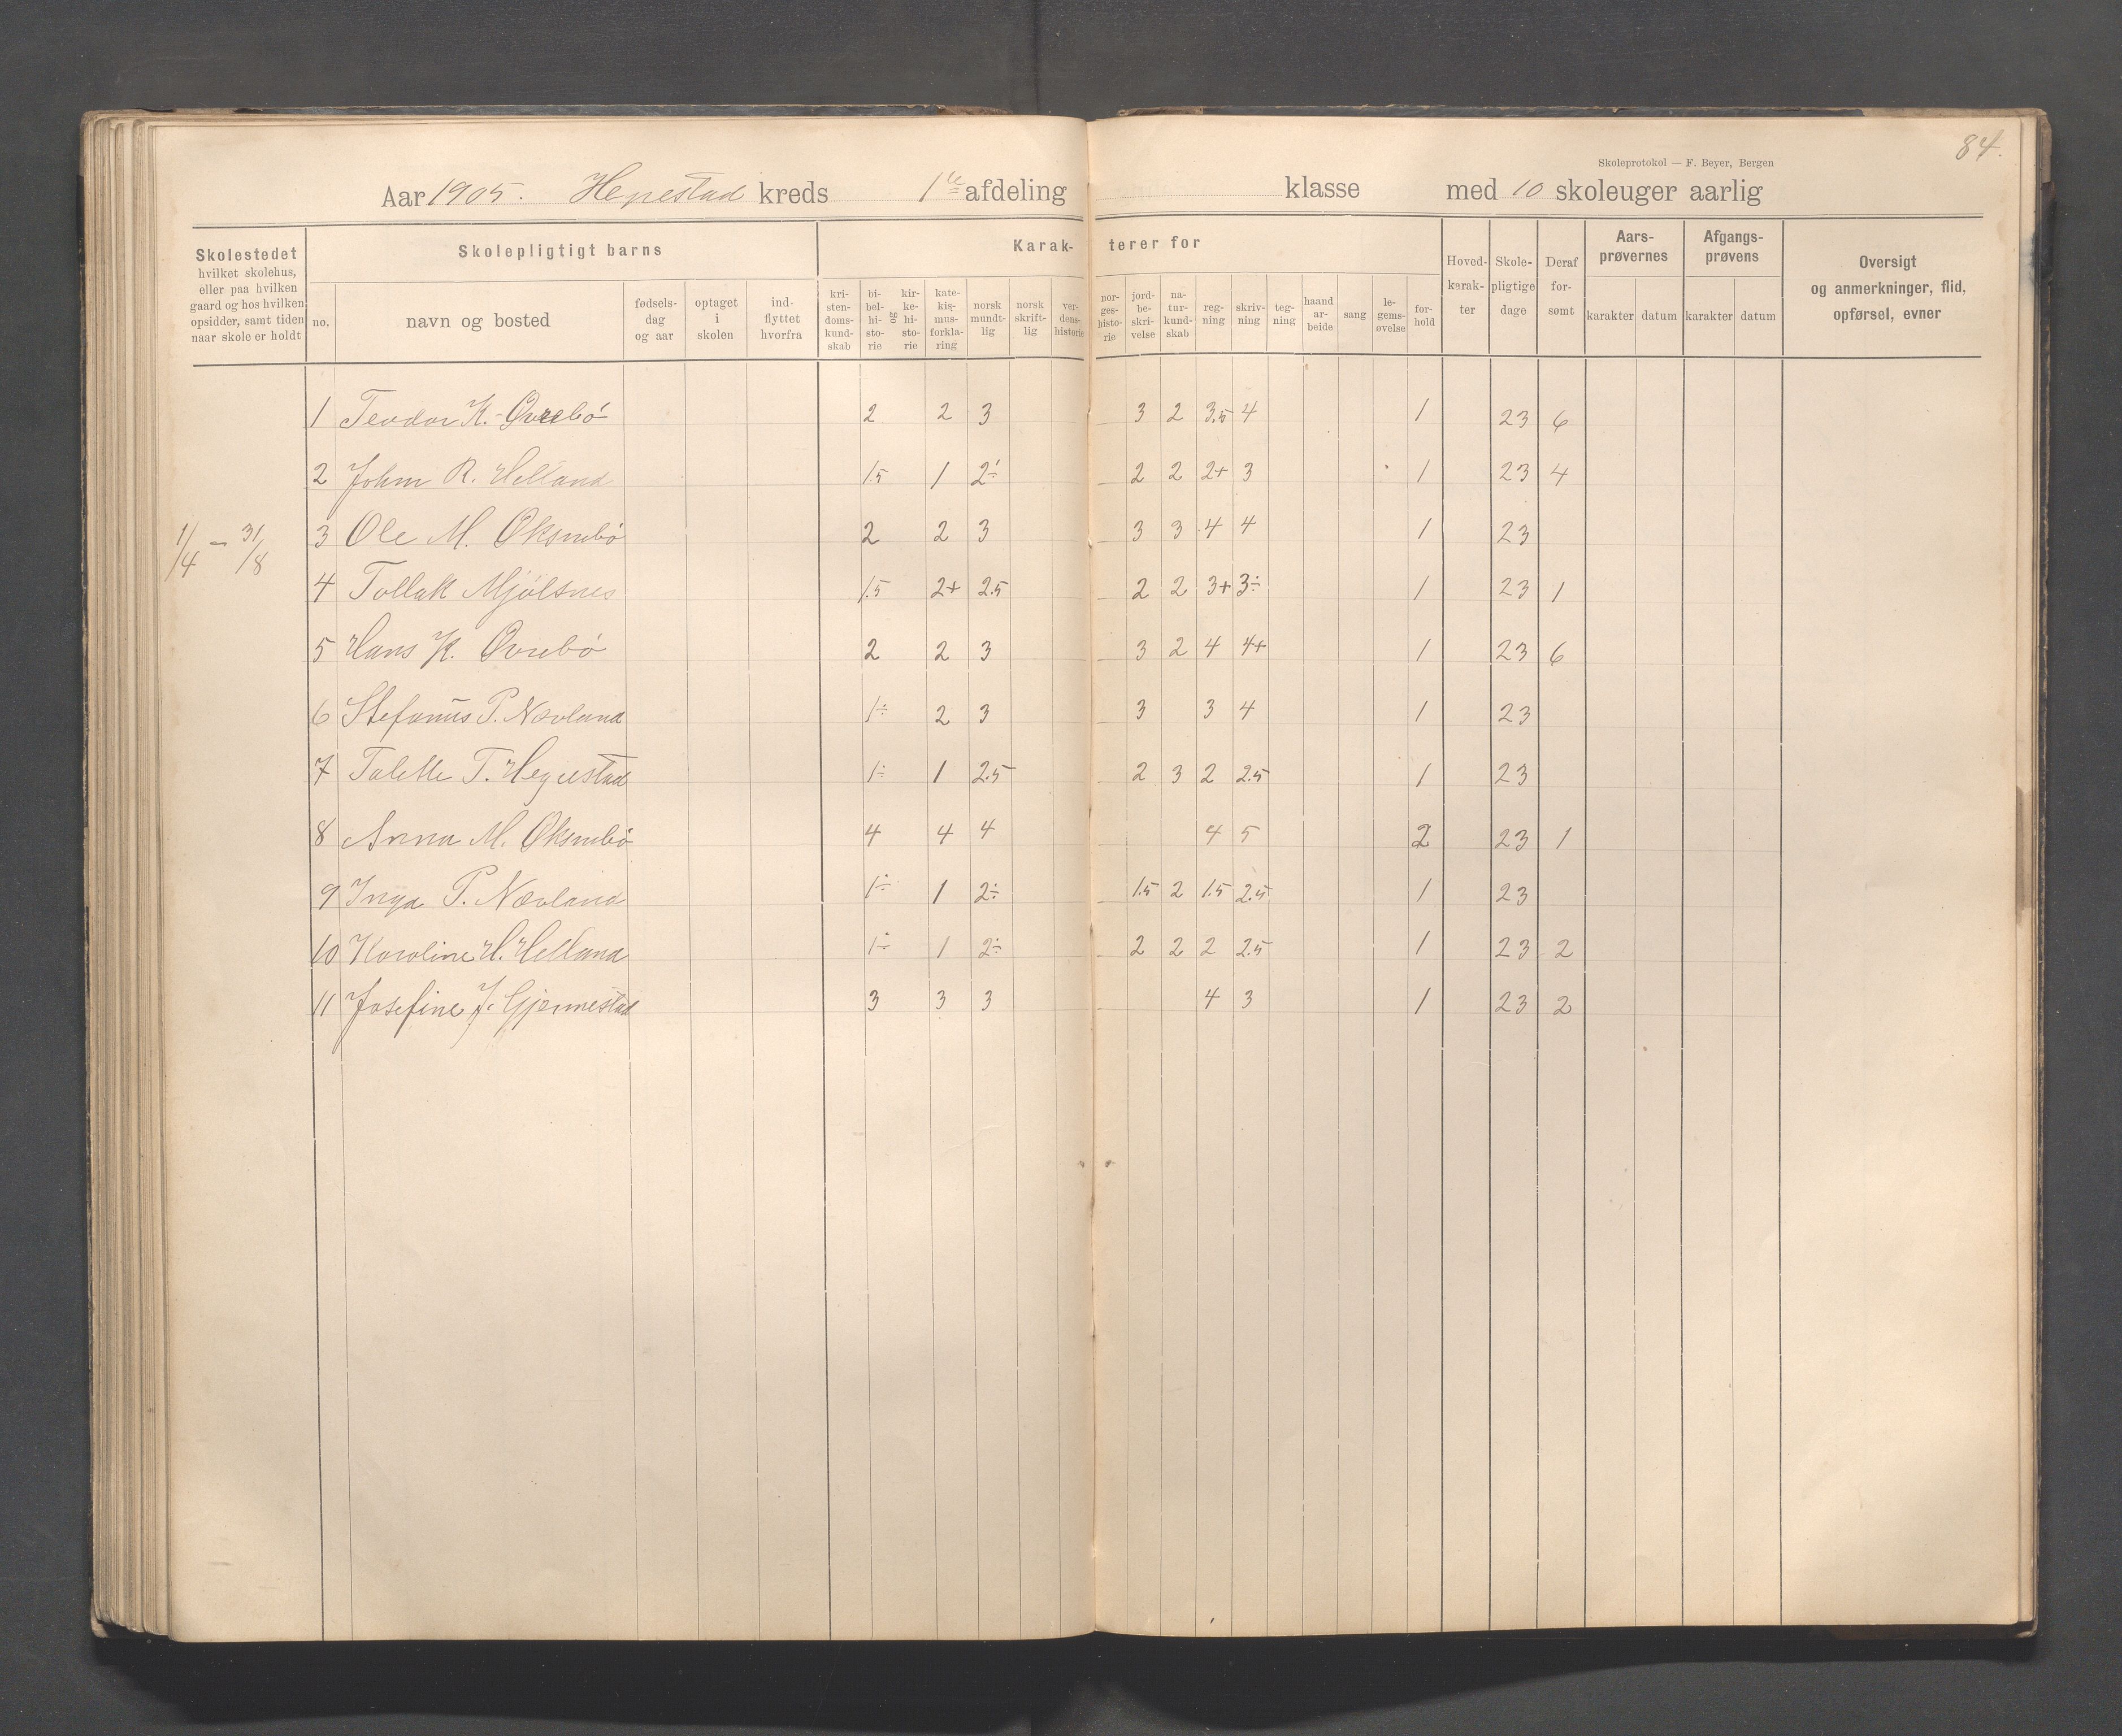 84.
Skoleprotokol — F. Beyer, Bergen
Aar 1905. Hegrestad kreds 1ste afdeling klasse med 10 skoleuger aarlig
Skolestedet
hvilket skolehus,
eller paa hvilken
gaard og hos hvilken
opsidder, samt tiden
naar skole er holdt
Skolepligtigt barns
no.
navn og bosted
fødsels-
dag
og aar
optaget
i
skolen
ind-
flyttet
hvorfra
Karak- terer for
kri-
sten-
doms-
kund-
skab
bi-
bel-
hi-
sto-
rie
og
kir-
ke-
hi-
sto-
rie
kate-
kis-
mus-
forkla-
ring
norsk
mundt-
lig
norsk
skrift-
lig
ver-
dens-
historie
nor-
ges-
histo-
rie
jord-
be-
skri-
velse
na-
tur-
kund-
skab
reg-
ning
skriv-
ning
teg-
ning
haand
ar-
beide
sang
le-
gems-
øvelse
for-
hold
Hoved-
karak-
ter
Skole-
pligtige
dage
Deraf
for-
sømt
Aars-
prøvernes
karakter datum
Afgangs-
prøvens
karakter datum
Oversigt
og anmerkninger, flid,
opførsel, evner
1 Teodor K. Øvrebö 2 2 3 3 2 3.5 4 1 23 6
2 John R. Helland 1.5 1 2÷ 2 2 2+ 3 1 23 4
1/4 – 31/8
3 Ole M. Oksnebö 2 2 3 3 3 4 4 1 23
4 Tollak Mjölsnes 1.5 2+ 2.5 2 2 3+ 3÷ 1 23 1
5 Hans K. Øvrebö 2 2 3 3 2 4 4+ 1 23 6
6 Stefanus P. Nævland 1÷ 2 3 3 3 4 1 23
7 Talette T. Hegrestad 1÷ 1 2.5 2 3 2 2.5 1 23
8 Anna M. Oksnebö 4 4 4 4 5 2 23 1
9 Inga P. Nævland 1÷ 1 2÷ 1.5 2 1.5 2.5 1 23
10 Karoline H. Helland 1÷ 1 2÷ 2 2 2 2.5 1 23 2
11 Josefine J. Gjermestad 3 3 3 4 3 1 23 2